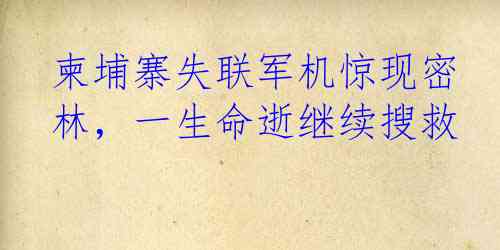 柬埔寨失联军机惊现密
林，一生命逝继续搜救